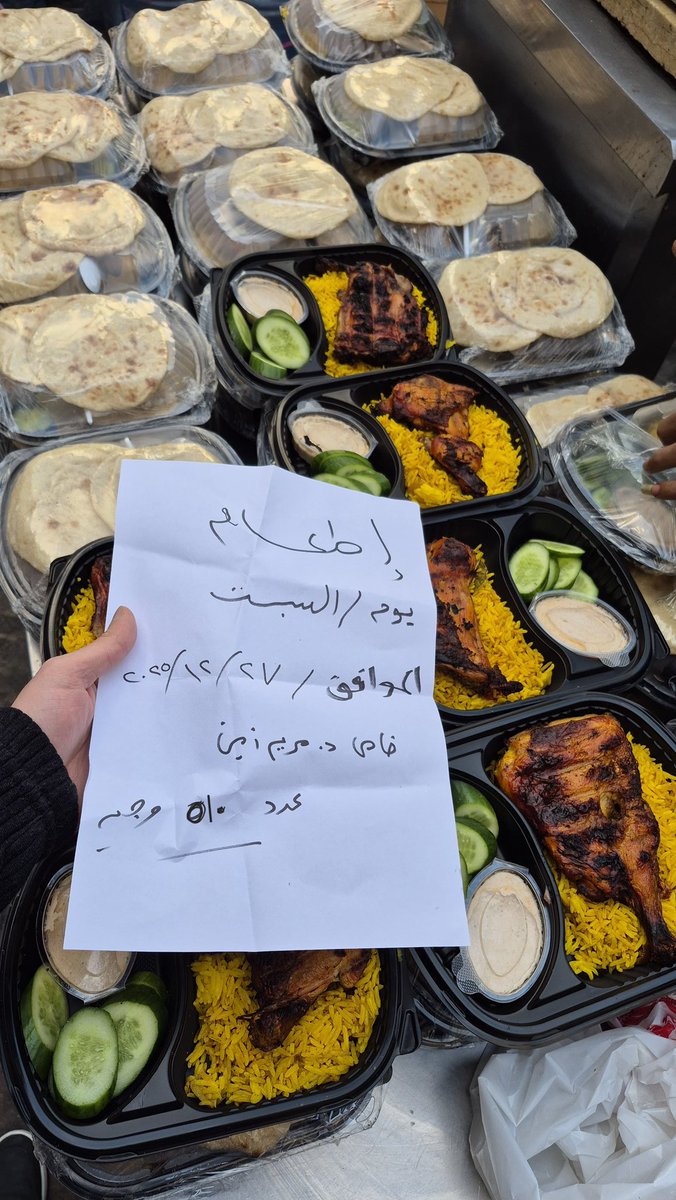 إطعام
يوم / السبت
الموافق / ٢٠٢٥/١٢/٢٧
خاص د. مريم أمين
عدد ٥١٠ وجبه